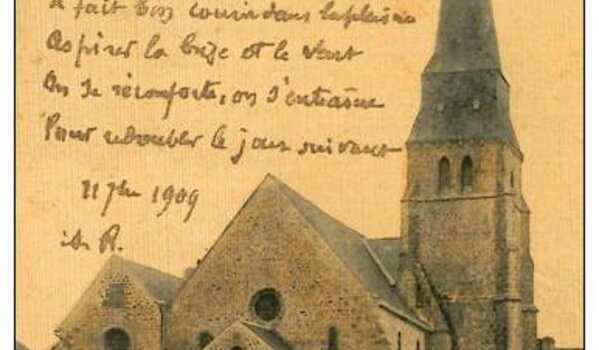 Il fait bon courir dans la plaine
Aspirer la brise et le vent
On se réconforte, on s'entraîne
Pour redoubler le jour suivant
11 7bre 1909
R.